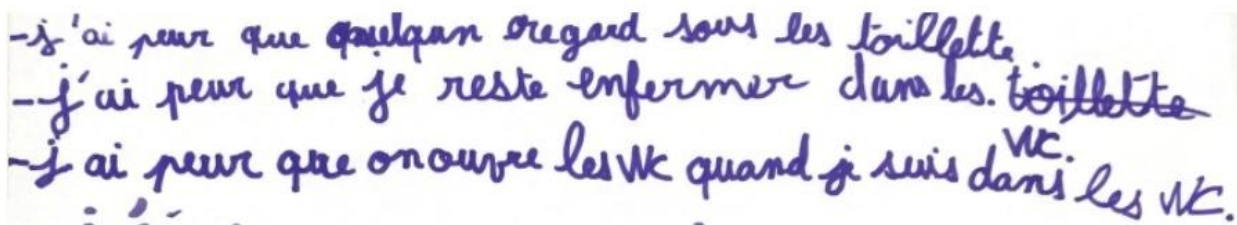 -j'ai peur que quelqun regard sous les toillette.
-j'ai peur que je reste enfermer dans les. toillette
WC.
-j ai peur que on ouvre les WC quand je suis dans les WC.